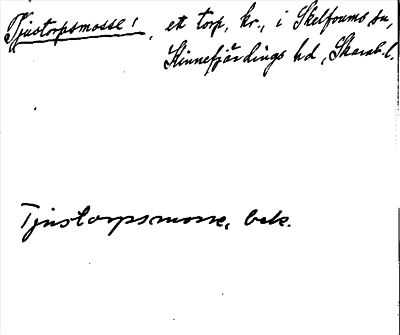 Tjustorpsmosse!, ett torp, kr., i Skelfvums sn,
Kinnefjärdings hd, Skarab. l.
Tjustorpsmosse, bek.